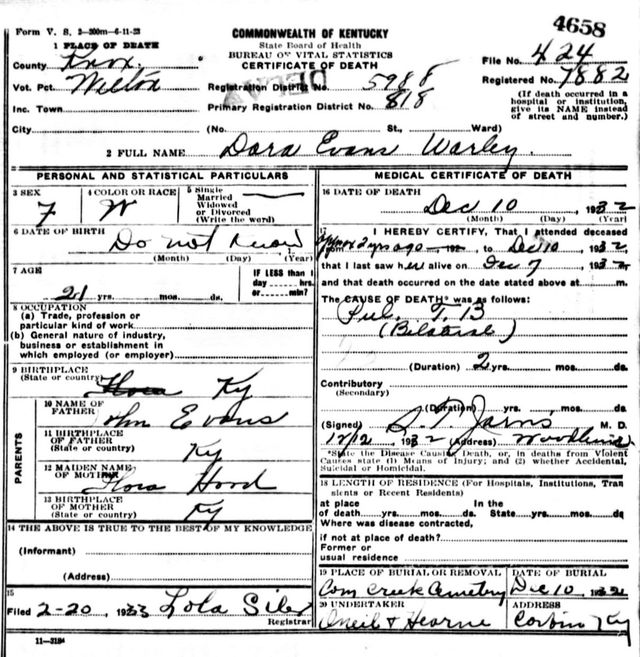 Form V. S. 2-300m-6-11-23
4658
COMMONWEALTH OF KENTUCKY
State Board of Health
BUREAU OF VITAL STATISTICS
CERTIFICATE OF DEATH
1 PLACE OF DEATH
County Knox
Vot. Pct. Wilton
Inc. Town
City
Registration District No. 5988
Primary Registration District No. 818
(No. St., Ward)
File No. 424
Registered No. 7882
(If death occurred in a
hospital or institution,
give its NAME instead
of street and number.)
2 FULL NAME Dora Evans Warley
PERSONAL AND STATISTICAL PARTICULARS
3 SEX
F
4 COLOR OR RACE
W
5 Single
Married
Widowed
or Divorced
(Write the word)
6 DATE OF BIRTH
Do not know
(Month) (Day) (Year)
7 AGE
21 yrs. mos. ds.
IF LESS than 1
day hrs.
or min?
8 OCCUPATION
(a) Trade, profession or
particular kind of work
(b) General nature of industry,
business or establishment in
which employed (or employer)
9 BIRTHPLACE
(State or country) Ky
PARENTS
10 NAME OF
FATHER John Evans
11 BIRTHPLACE
OF FATHER
(State or country) Ky
12 MAIDEN NAME
OF MOTHER Flora Hood
13 BIRTHPLACE
OF MOTHER
(State or country) Ky
14 THE ABOVE IS TRUE TO THE BEST OF MY KNOWLEDGE
(Informant)
(Address)
15
Filed 2-20, 1933 Lola Siler
Registrar
11-3184
MEDICAL CERTIFICATE OF DEATH
16 DATE OF DEATH
Dec 10, 1932
(Month) (Day) (Year)
17 I HEREBY CERTIFY, That I attended deceased
from 2 yrs ago, 192, to Dec 10, 1932
that I last saw her alive on Dec 7, 1932
and that death occurred on the date stated above at m.
The CAUSE OF DEATH* was as follows:
Pul. T. B
(Bilateral)
(Duration) 2 yrs. mos. ds.
Contributory
(Secondary)
(Duration) yrs. mos. ds.
(Signed) M. D.
12/12, 1932 (Address)
*State the Disease Causing Death, or, in deaths from Violent
Causes state (1) Means of Injury; and (2) whether Accidental,
Suicidal or Homicidal.
18 LENGTH OF RESIDENCE (For Hospitals, Institutions, Tran
sients or Recent Residents)
at place In the
of death yrs. mos. ds. State yrs. mos. ds
Where was disease contracted,
if not at place of death?
Former or
usual residence
19 PLACE OF BURIAL OR REMOVAL
Cemetery
DATE OF BURIAL
Dec 10, 1932
20 UNDERTAKER
Oneil & Hearne
ADDRESS
Corbin Ky